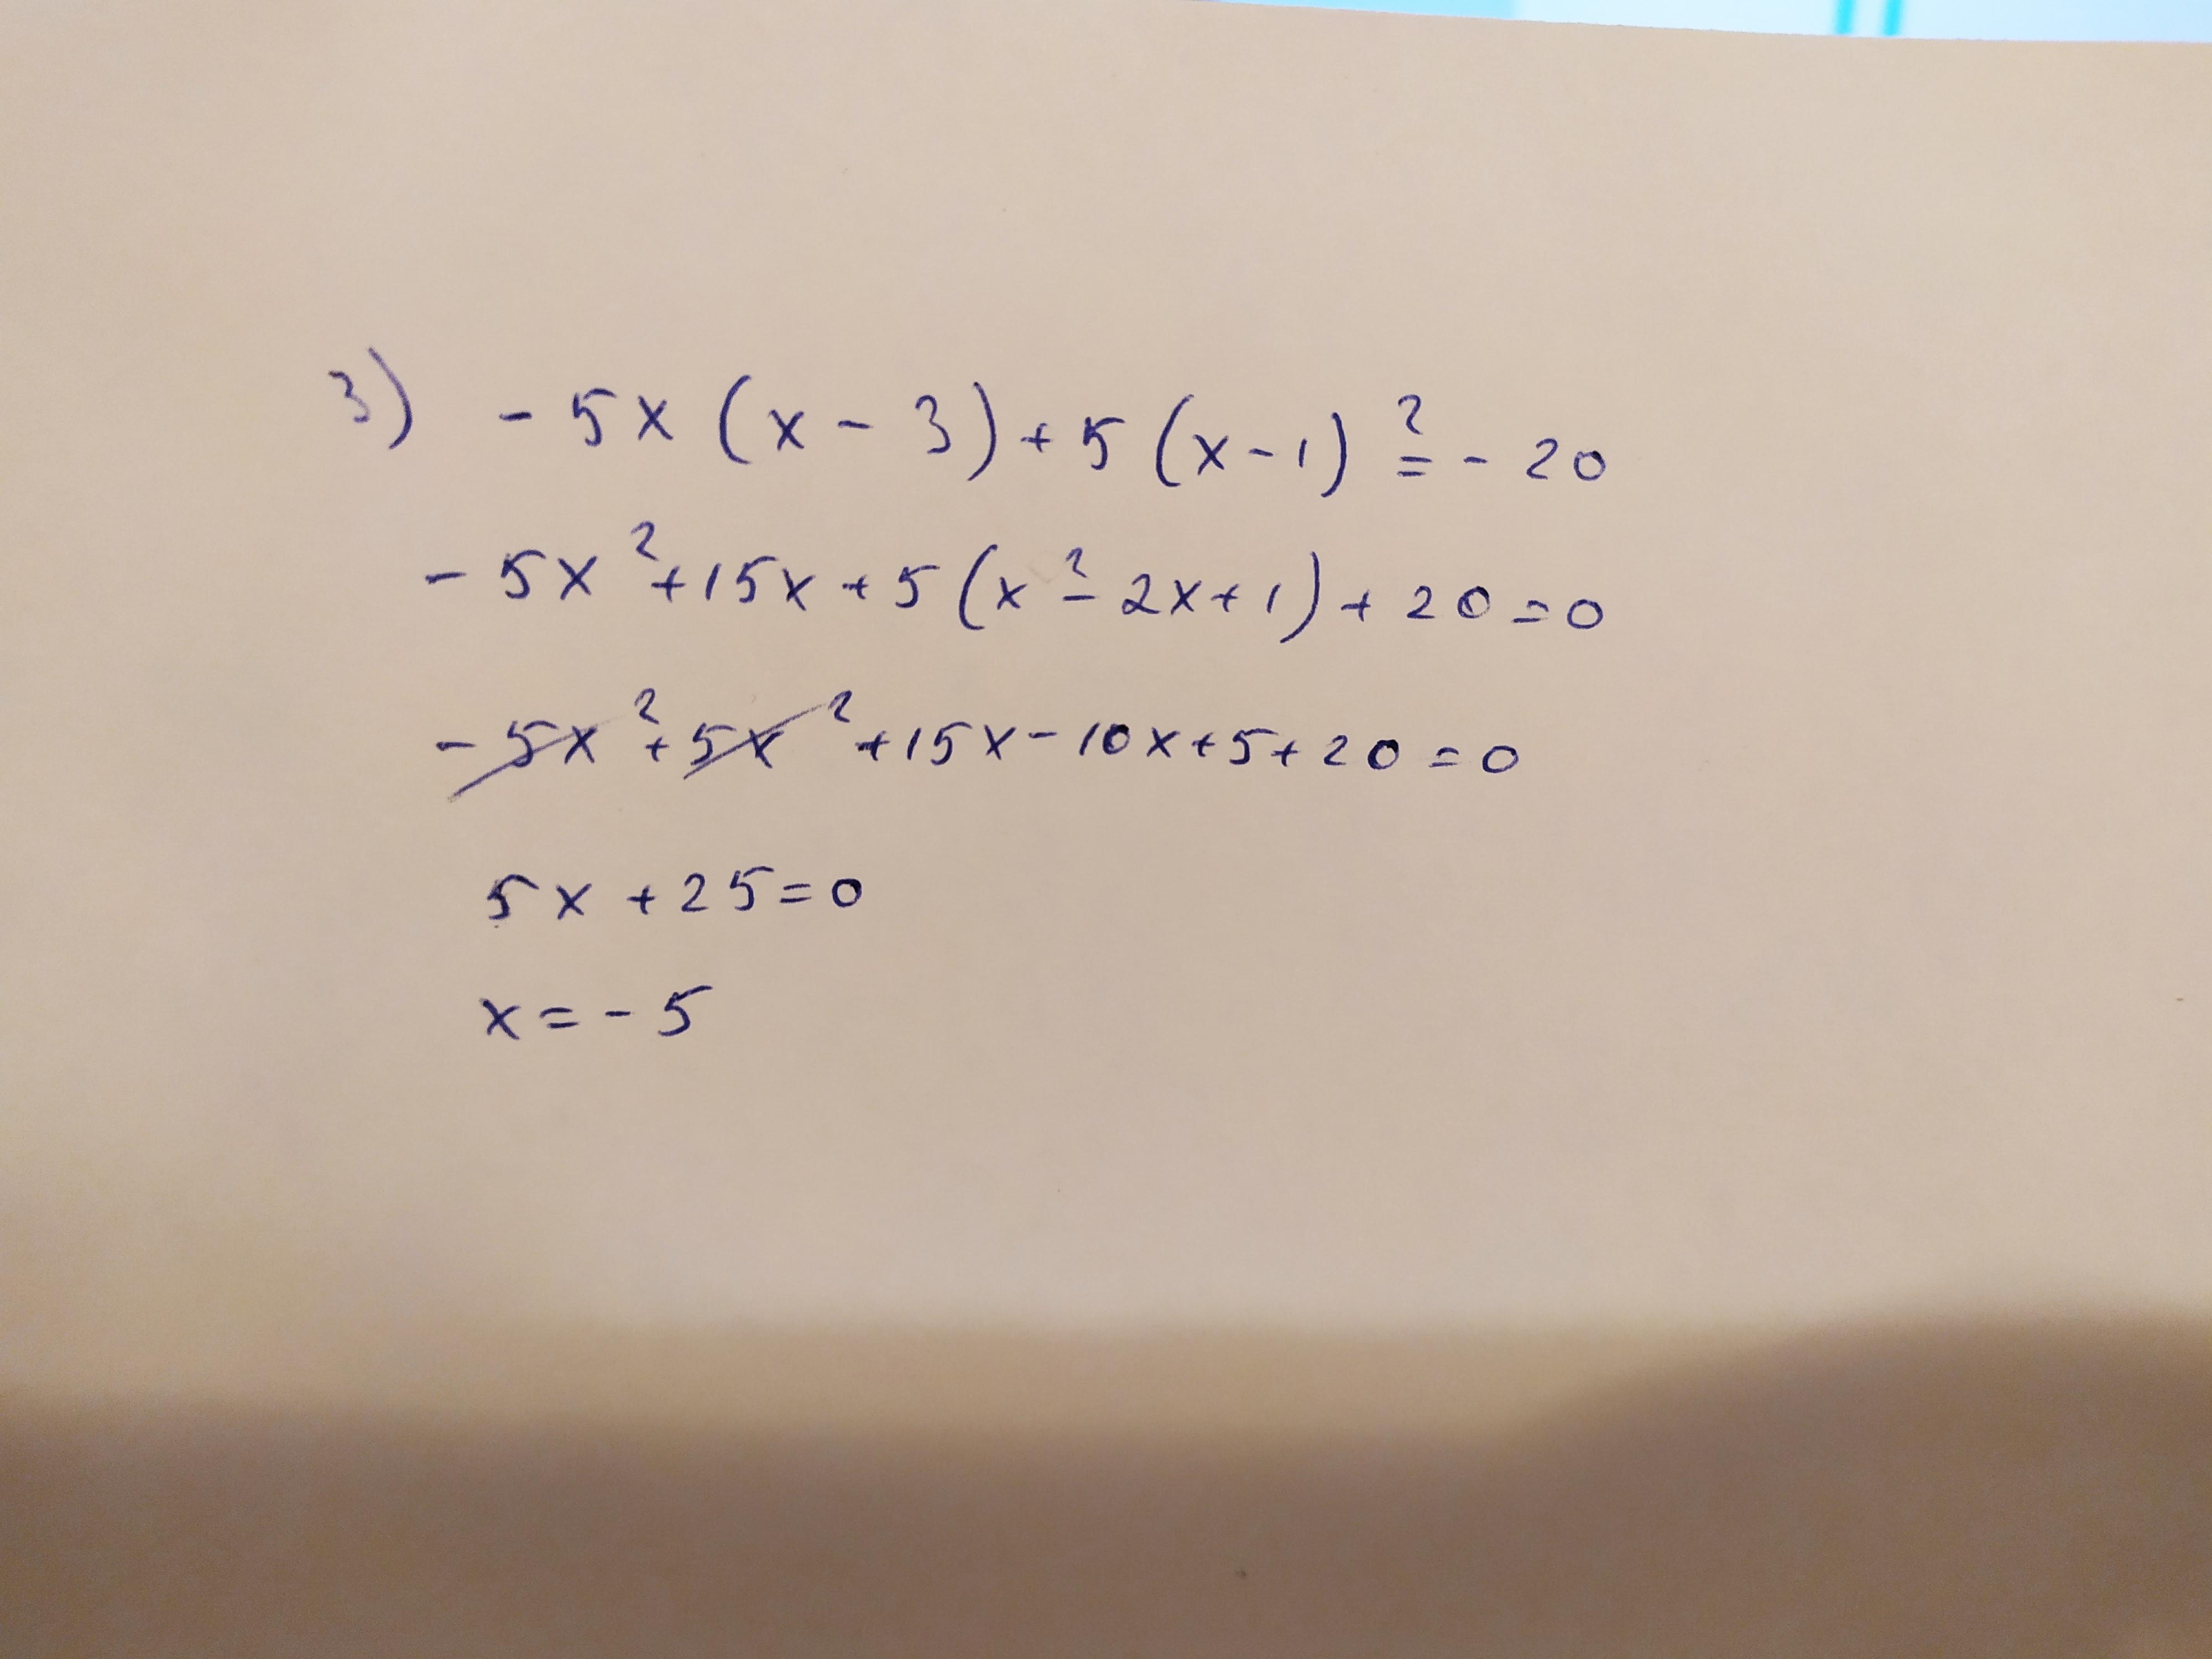 3) - 5x (x - 3) + 5 (x - 1)² = - 20
- 5x² + 15x + 5 (x² - 2x + 1) + 20 = 0
- 5x² + 5x² + 15x - 10x + 5 + 20 = 0
5x + 25 = 0
x = - 5